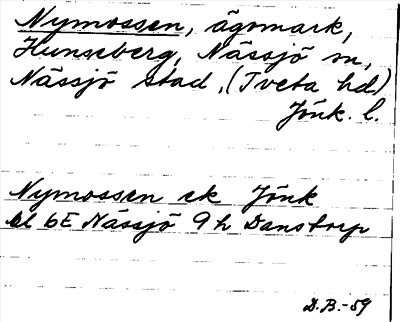 Nymossen, ägomark,
Hunseberg, Nässjö sn,
Nässjö stad, (Tveta hd)
Jönk. l.
Nymossen ek Jönk
bl 6E Nässjö 9h Danstorp
D.B.-59